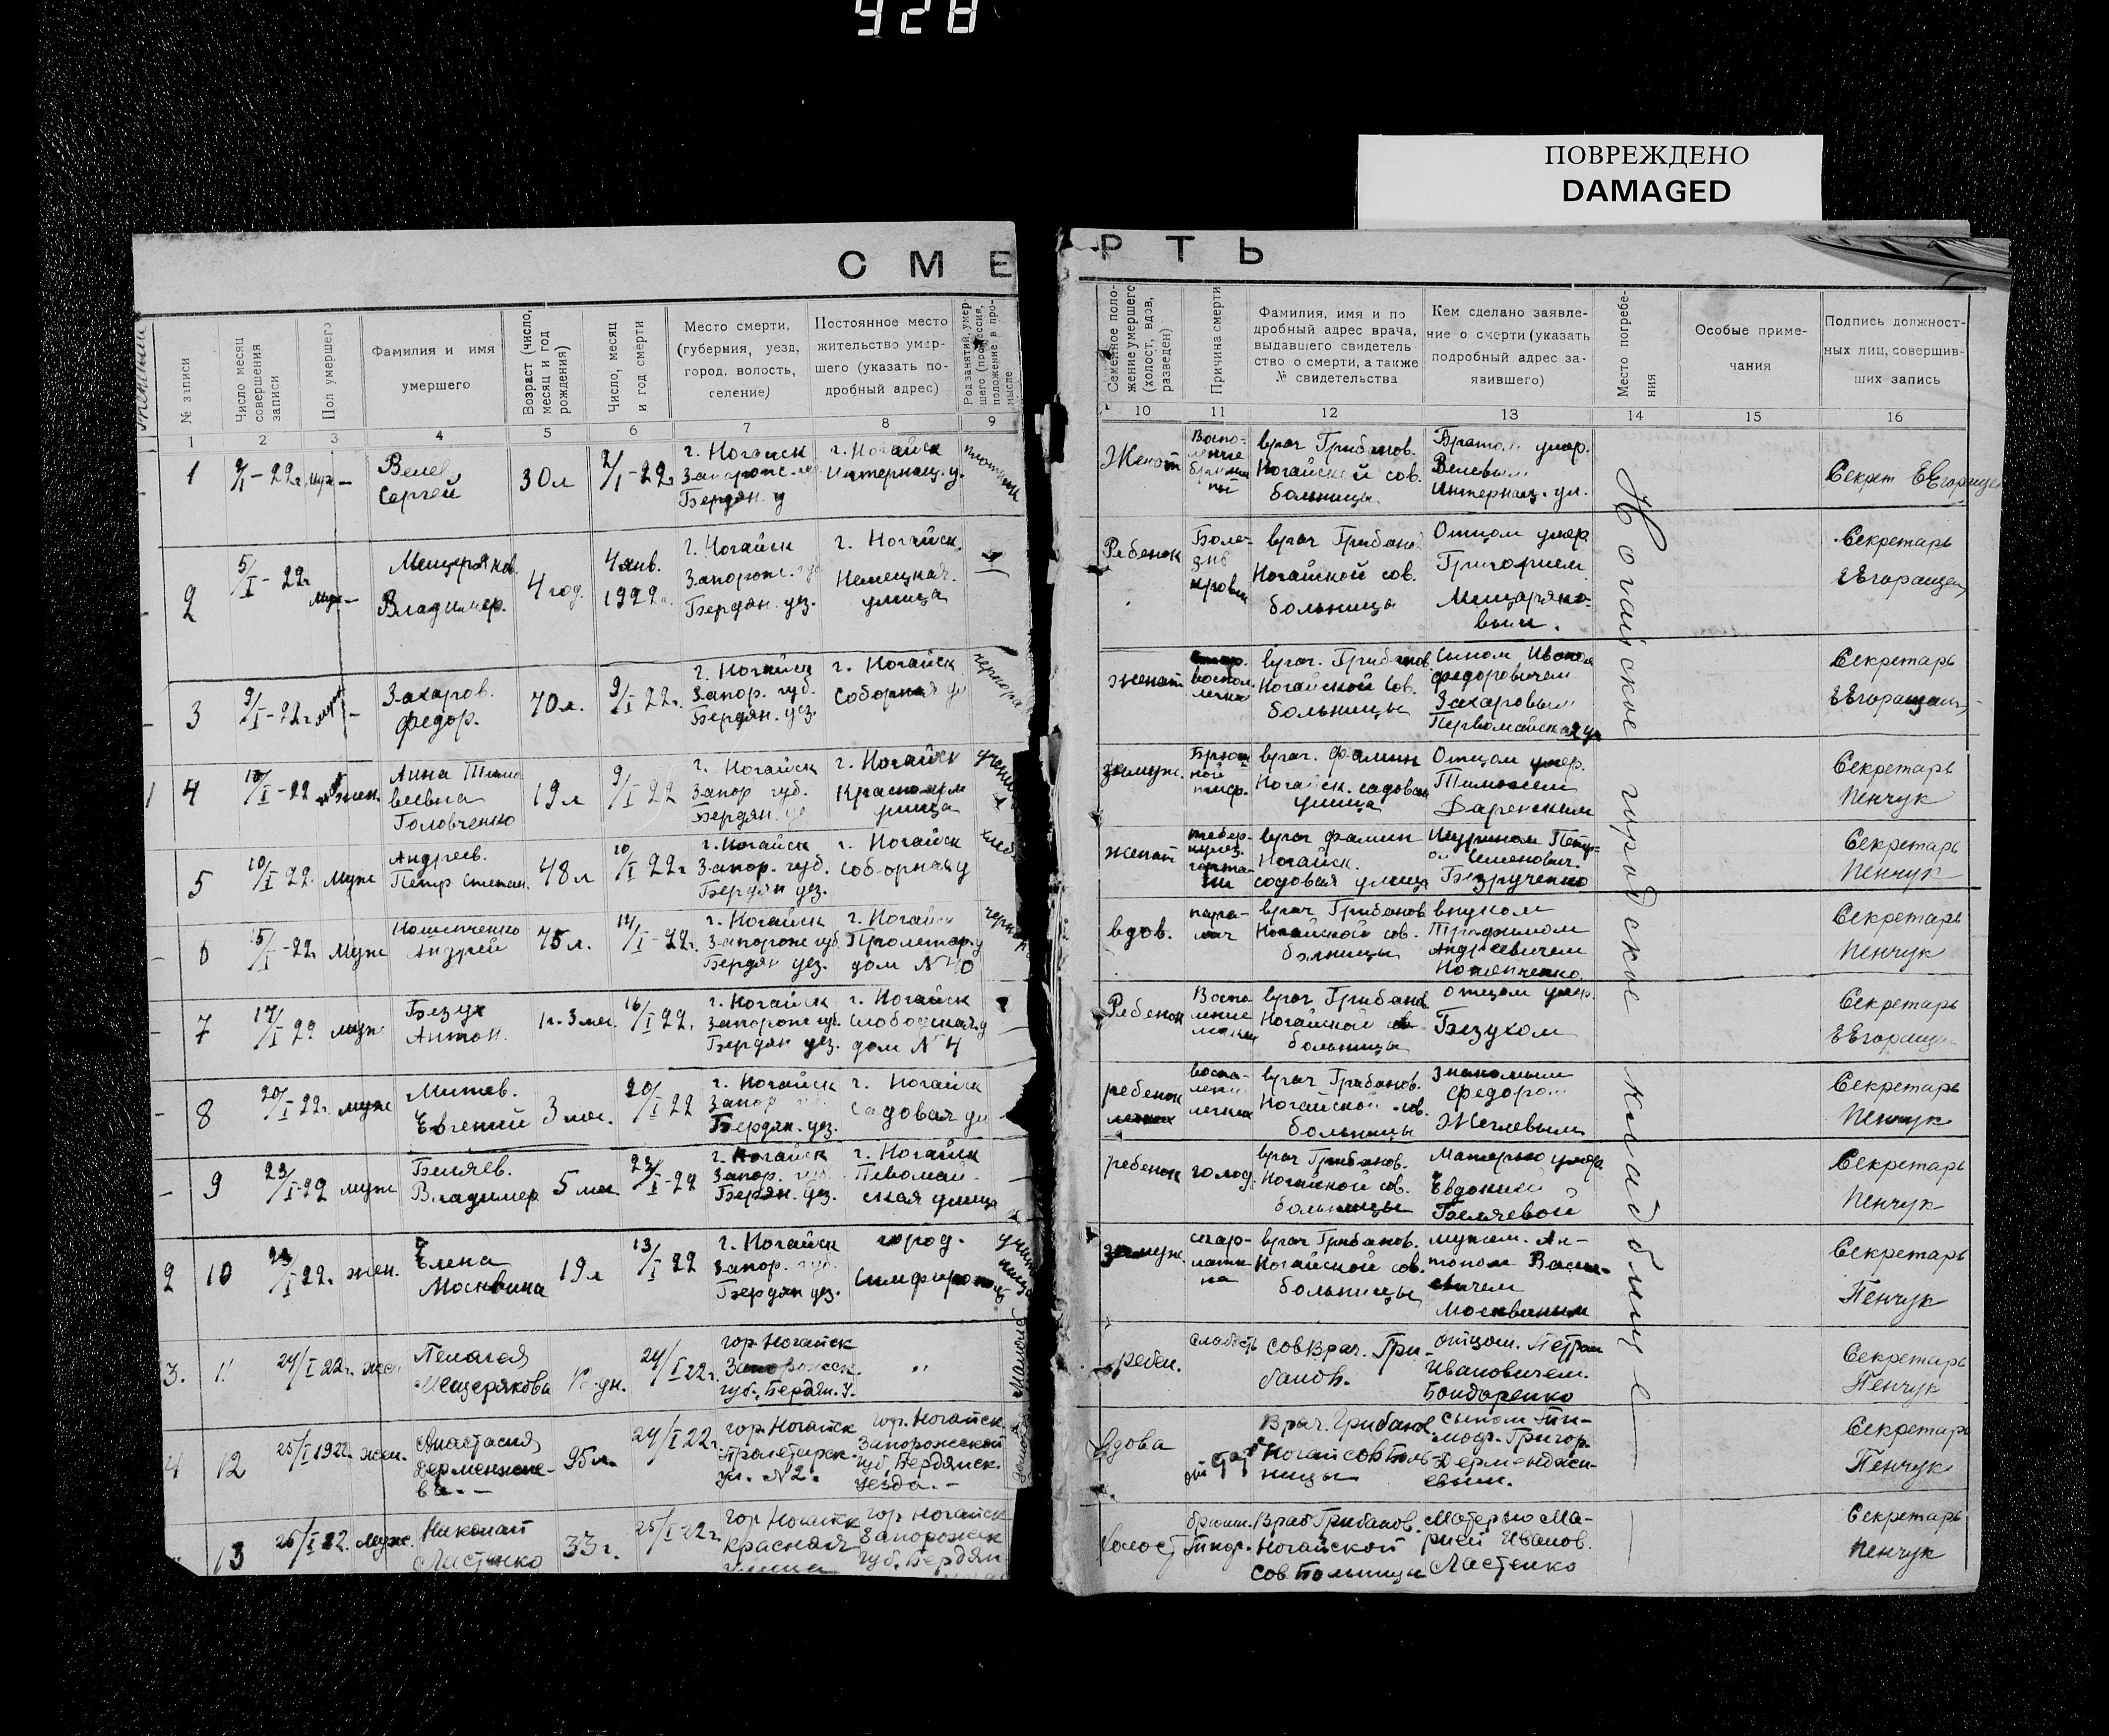 928
ПОВРЕЖДЕНО
DAMAGED
СМЕРТЬ
№ записи
Число месяц совершения записи
Пол умершего
Фамилия и имя
умершего
Возраст (число, месяц и год рождения)
Число, месяц и год смерти
Место смерти,
(губерния, уезд,
город, волость,
селение)
Постоянное место
жительство умер-
шего (указать по-
дробный адрес)
Род занятий, умер-
шего (профессия,
положение в про-
мысле
Семейное поло-
жение умершего
(холост, вдов,
разведен)
Причина смерти
Фамилия, имя и по
дробный адрес врача,
выдавшего свидетель-
ство о смерти, а также
№ свидетельства
Кем сделано заявле-
ние о смерти (указать
подробный адрес за-
явившего)
Место погребе-
ния
Особые приме-
чания
Подпись должност-
ных лиц, совершив-
ших запись
1 2 3 4 5 6 7 8 9 10 11 12 13 14 15 16
1
Сергей
30 л
г. Ногайск
Бердян. у
г. Ногайск
Интернац. у.
Женат
врач Грибанов.
Ногайской сов.
больницы
Братом умер.
Велевым
Интернац. ул.
Секрет
2
5/I-22г
муж
Мещеряков
Владимер.
4 год.
4 янв.
1922г.
г. Ногайск
Запорож. губ
Бердян. уез.
г. Ногайск.
Немецкая.
улица
Ребенок
Болезнь
крови
врач Грибанов
Ногайской сов.
больницы
Отцом умер.
Григорием
Мещеряко-
вым.
Секретарь
3
9/I-22г
Захаров.
Федор.
70 л.
9/I 22г.
г. Ногайск
Запор. губ.
Бердян. уез.
г. Ногайск
Соборная ул
женат
врач. Грибанов.
Ногайской Сов.
больницы
Сыном Иваном
Федоровичем
Захаровым
Первомайская ул
Секретарь
4
10/I-22
жен.
Анна Тимо
веевна
Головченко
19 л
9/I 22
г. Ногайск
Запор губ.
Бердян. уе
г. Ногайск
улица
замуж.
врач. Фамин
Ногайск. садовая
улица
Отцом умер.
Тимофеем
Даренским
Секретарь
Пенчук
5
10/I 22.
Муж
Андреев.
Петр Степан.
48 л
10/I 22г
г. Ногайск
Запор. губ.
Бердян уез.
г. Ногайск
Соборная у
женат
врач Фамин
Ногайск.
садовая улица
Шурином Петр-
ом Семенович.
Безрученко
Секретарь
Пенчук
6
15/I-22г
Муж
Андрей
75 л.
14/I-22г.
г. Ногайск
Запорож губ.
Бердян уез.
г. Ногайск
Пролетар. у
дом N 40
вдов.
пара-
лич
врач Грибанов
Ногайской сов.
больницы
внуком
Трофимом
Андреевичем
Секретарь
Пенчук
7
17/I 22
муж
Безух
Антон.
1 г. 3 мес.
16/I 22.
г. Ногайск
Запорож губ.
Бердян уез.
г. Ногайск
Слободская. у
дом N 4
Ребенок
врач Грибанов
Ногайской сов
больницы
отцом умер.
Безухом
Секретарь
8
20/I 22г.
муж
Митев.
Евгений
3 мес.
20/I 22
г. Ногайск
Запор
Бердян. уез.
г. Ногайск
Садовая ул
ребенок
врач Грибанов.
Ногайской сов.
больницы
Знакомым
Федором
Жеглевым
Секретарь
Пенчук
9
23/I-22
муж
Беляев.
Владимер
5 мес
г. Ногайск
Запор. губ.
Бердян. уез.
г. Ногайск
Певомай-
ская улица
ребенок
голод.
врач Грибанов.
Ногайской сов.
больницы
Матерью умер
Евдокией
Беляевой
Секретарь
Пенчук
2 10
жен.
Елена
Москвина
19 л
13/I 22
г. Ногайск
Запор. губ.
Бердян уез.
город.
Симферополь
учительница
замуж.
скар-
лати
на
врач Грибанов.
Ногайской сов.
больницы
мужем. Ан-
тоном Васи-
евичем
Москвиным
Секретарь
Пенчук
3. 11
24/I 22г.
жен
Пелагея
Мещерякова
24/I 22г.
гор. Ногайск
Запорожск.
губ. Бердян. У.
"
ребен.
слабость
Сов Врач. Гри-
банов.
отцом. Петром
Ивановичем.
Бондаренко
Секретарь
Пенчук
4 12
25/I 1922.
жен.
Анастасия
95 л.
24/I 22г.
гор. Ногайск
Пролетарск.
ул. N 2.
гор. Ногайск
Запорожской
губ. Бердянск.
уезда. -
Вдова
Врач. Грибанов
Ногай сов Боль-
ницы
Сыном Ти-
моф. Григор.
Дерменджи-
евым.
Секретарь
Пенчук
13
26/I 22.
Муж.
Николай
Ластенко
33 г.
25/I-22г.
гор Ногайск
Красная
улица
гор Ногайск
Запорожск
губ. Бердян
Холост
брюшн.
Тиф.
Врач Грибанов.
Ногайской
сов Больницы
Матерью Ма-
рией Иванов.
Ластенко
Секретарь
Пенчук
Ногайское городское кладбище